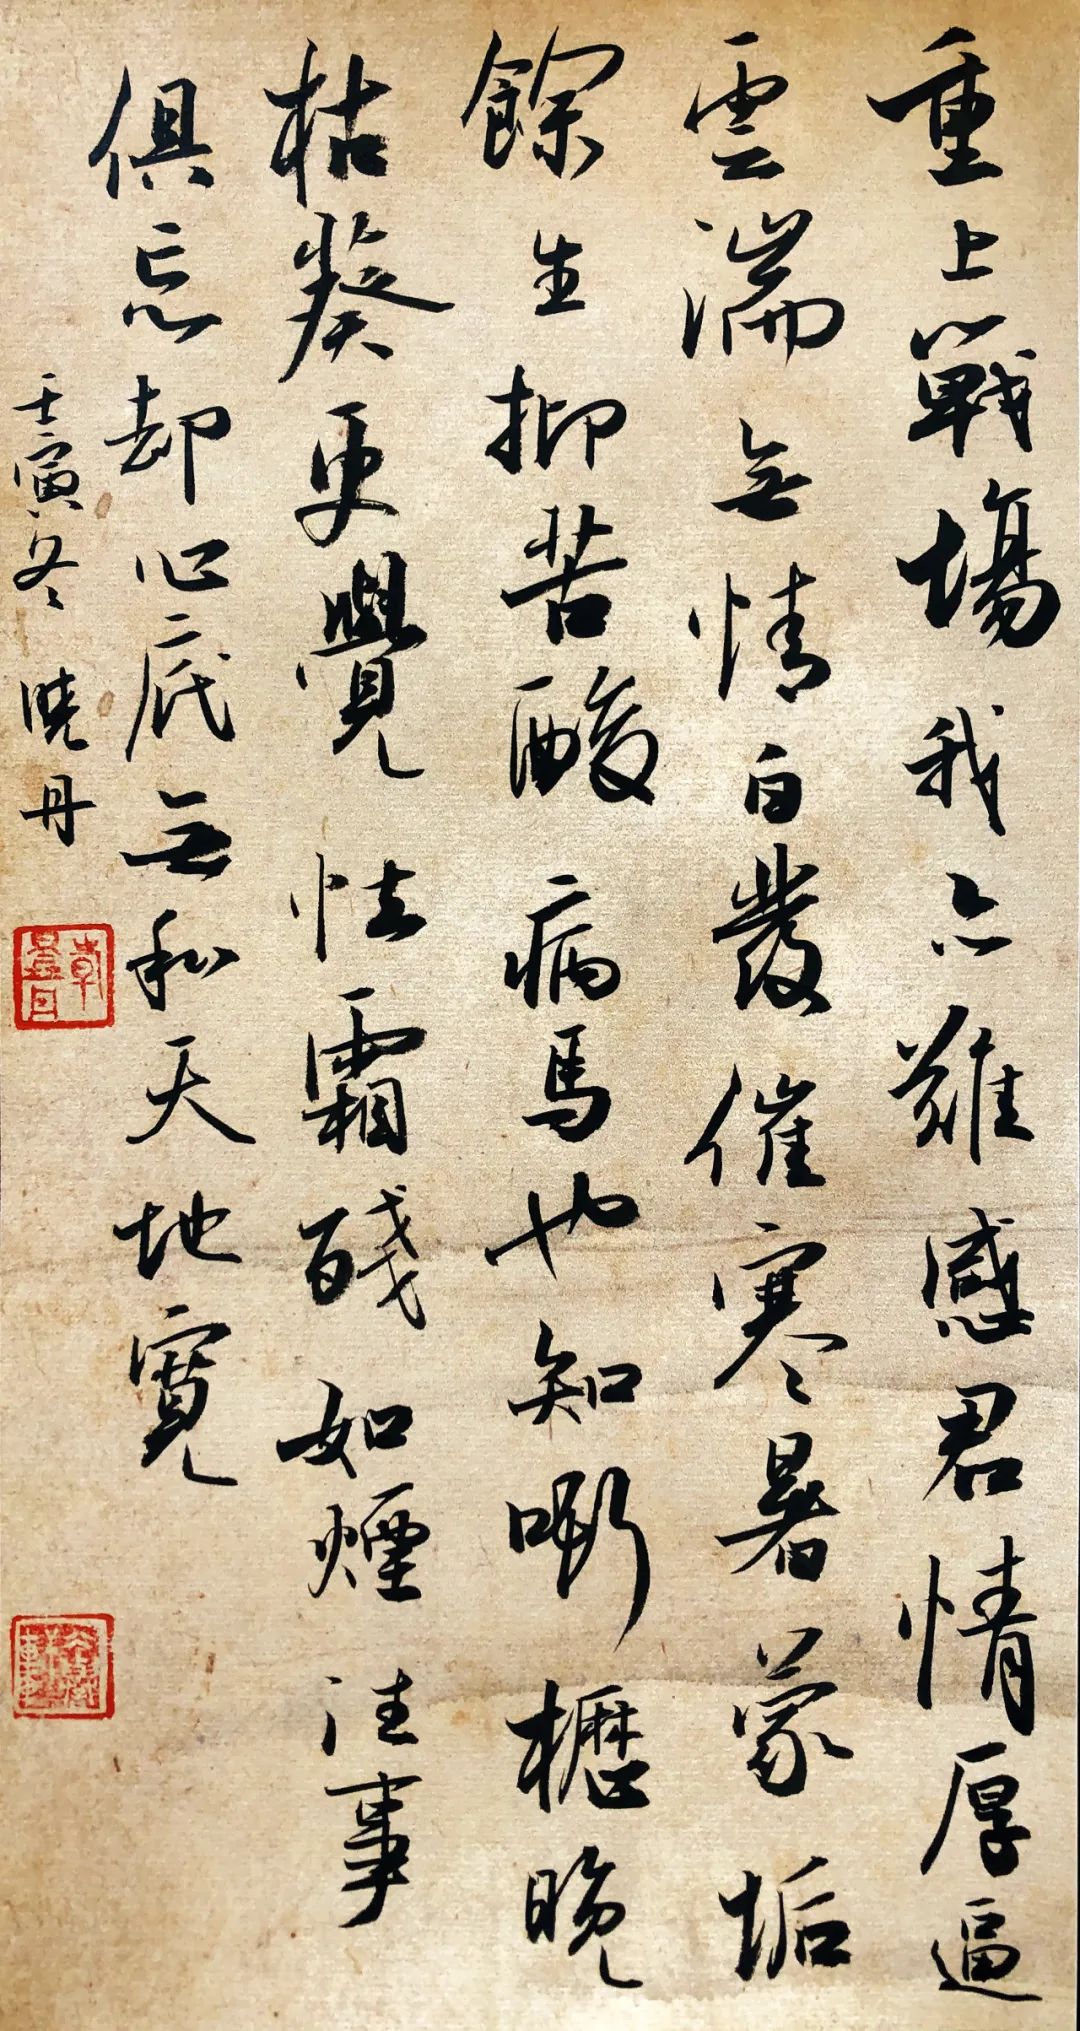 重上戰場我亦難感君情厚逼
雲湍無情白發催寒暑蒙垢
餘生抑苦酸病馬也知嘶櫪晚
枯葵更覺怯霜殘如煙往事
俱忘却心底無私天地寬
壬寅冬曉丹